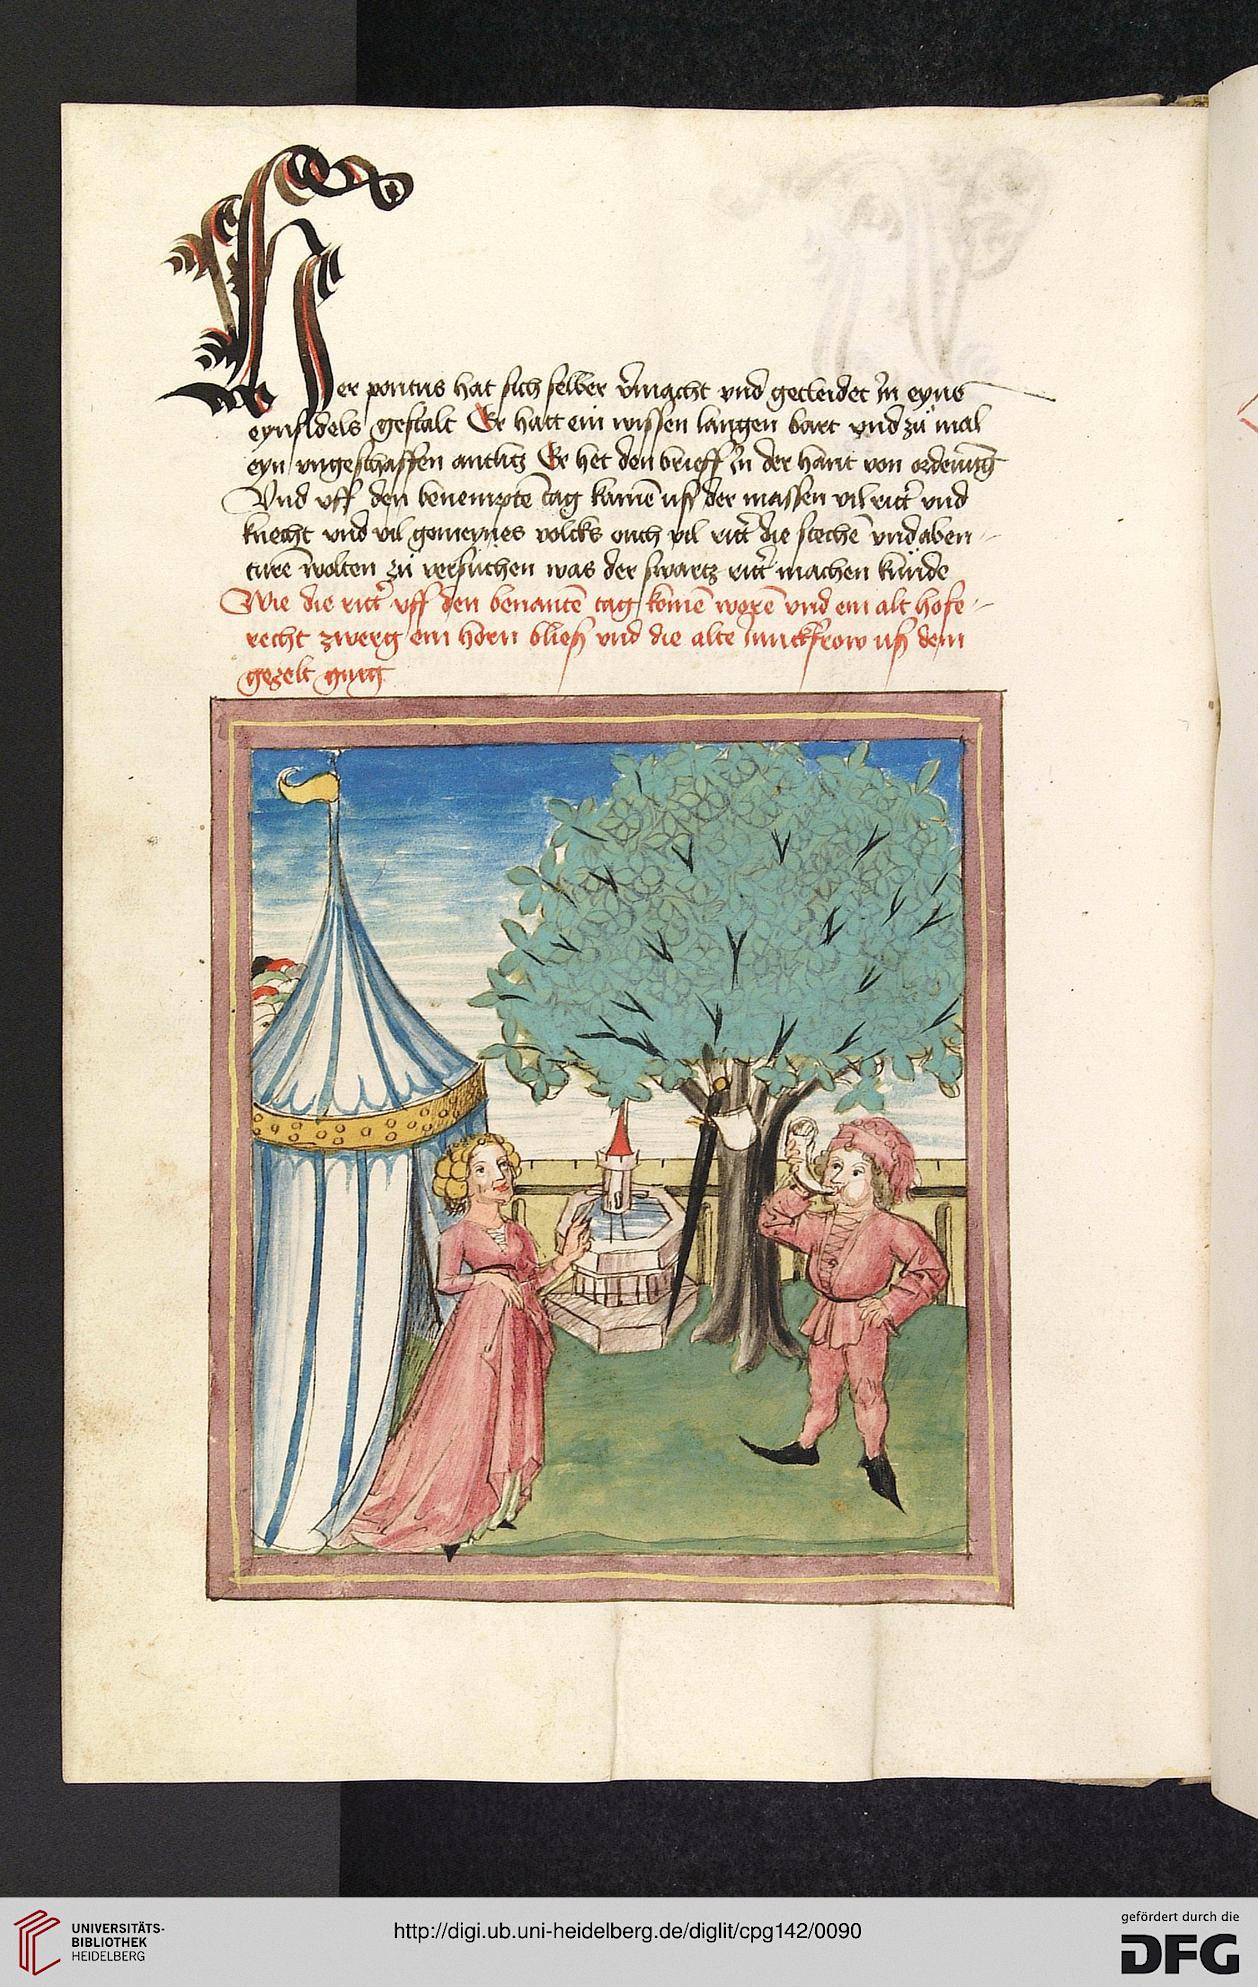 Her pontus hat sich selber v̄macht und gecleidet in eyns
eynsidels gestalt Er hatt ein wissen langen bart und zu mal
eyn ungeschaffen antlitz Er het den brieff in der hant von ordenūg
Und uff den benempten tag kamē uß der massen vil ritt' und
knecht und vil gemeynes volcks ouch vil ritt' die stechē und aben-
turē wolten zu versuchen was der swartz ritt' machen kunde
Wie die ritt' uff den benantē tag komē worē und ein alt hofe-
recht zwerg ein horn bließ und die alte junckfrow uß dem
gezelt gieng
UNIVERSITÄTS-
BIBLIOTHEK
HEIDELBERG
http://digi.ub.uni-heidelberg.de/diglit/cpg142/0090
gefördert durch die
DFG